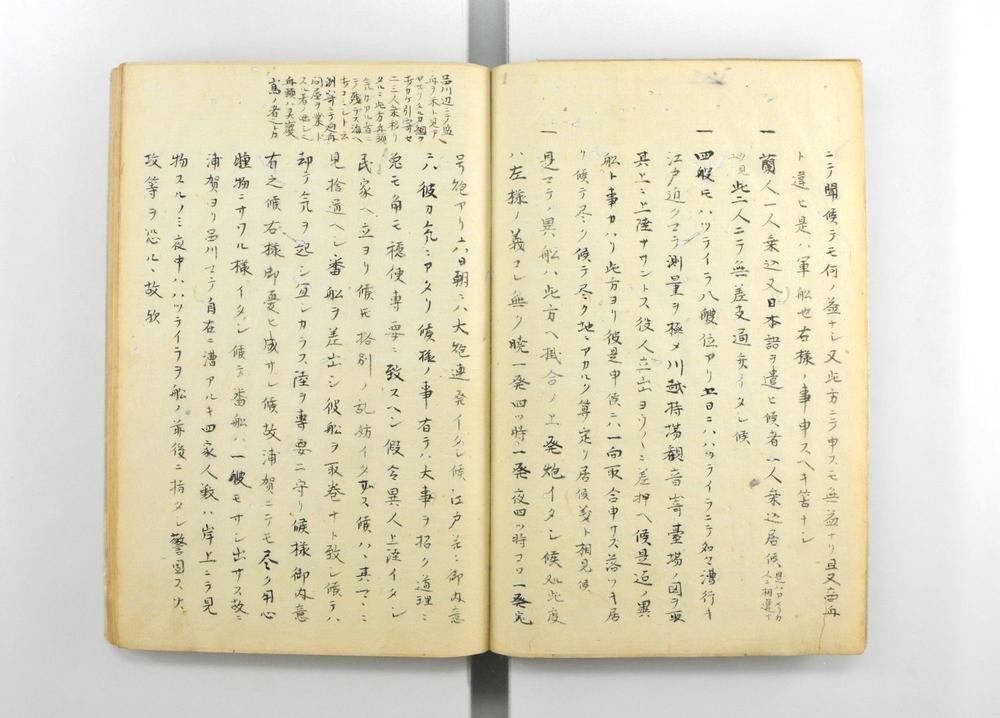 ニテ聞候テモ何ノ益ナシ又此方ニテ申スモ無益ナリ且又商船
ト違ヒ是ハ軍船也右様ノ事申スヘキ筈ナシ
一 蘭人一人乗込又日本語ヲ遣ヒ候者一人乗込居候是ハアメリカ人ニ相違ナ
此二人ニテ無差支通弁イタシ候
一 四艘モハツテイラ八艘位アリ上日ニハハツテイラニテ処々漕行キ
江戸近クマテ測量ヲ極メ川越持場観音嵜臺場ノ図ヲ取
其上ニ上陸サントス役人立出ヨウ〱ニ差押ヘ候是迄ノ異
船ト事カハリ此方ヨリ彼是申候ニハ一向取合申サス落ツキ居
リ候テ尽ク候テ尽ク地ニアカルク算定リ居候義ト相見候
一 是マテノ異船ハ此方ヘ掛合ノ上発炮イタシ候処此度
ハ左様ノ義コレ無ク暁一発四ツ時一発夜四ツ時コロ一発完
品川辺ニテノ盗
二三人乗移リ
タルニ此方舟頭
気カアル者ニ
テ残ラス海ヘ
問屋ヲ業ト
スル者ノ由
舟頭ハ天慶
嶌ノ者ノ方
号炮アリ六日朝ニハ大炮連発イタシ候江戸表ニ御内意
ニハ彼カ気ニアタリ候様ノ事有テハ大事ヲ招ク道理ニ
兔モ角モ穏便専要ニ致スヘシ假令異人上陸イタシ
民家ヘ立ヨリ候トモ格別ノ乱妨イタサス候ハヽ其マヽニ
見捨遁ヘシ番船ヲ差出シ彼船ヲ取巻ナト致シ候テハ
却テ気ヲ起シ宜シカラス陸ヲ専要ニ守リ候様御内意
有之候右様御憂ヒ成サレ候故浦賀ニテモ尽ク用心
腫物ニサワル様イタシ候テ番船ハ一艘モサシ出サス故ニ
浦賀ヨリ品川マテ自在ニ漕アルキ四家人数ハ岸上ニテ見
物スルノミ夜中ハハツテイラヲ船ノ前後ニ指タシ警固ス火
攻等ヲ恐ルヽ故歟